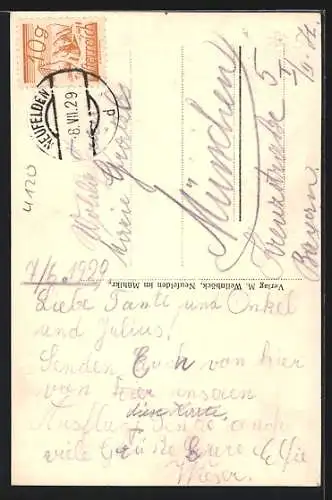 10g
Österreich
NEUFELDEN
-8.VII.29
d
4120
Wohlg.
Familie
München
Kreuzstraße 5
I/ St.
Bayern.
Verlag M. Weinhböck, Neufelden im Mühlkr.
7/6. 1929
Liebe Tante und Onkel
und Julius!
Senden Euch von hier
von unseren
Ausflug diese Karte,
viele Grüße Eure Elfie
Wieser.